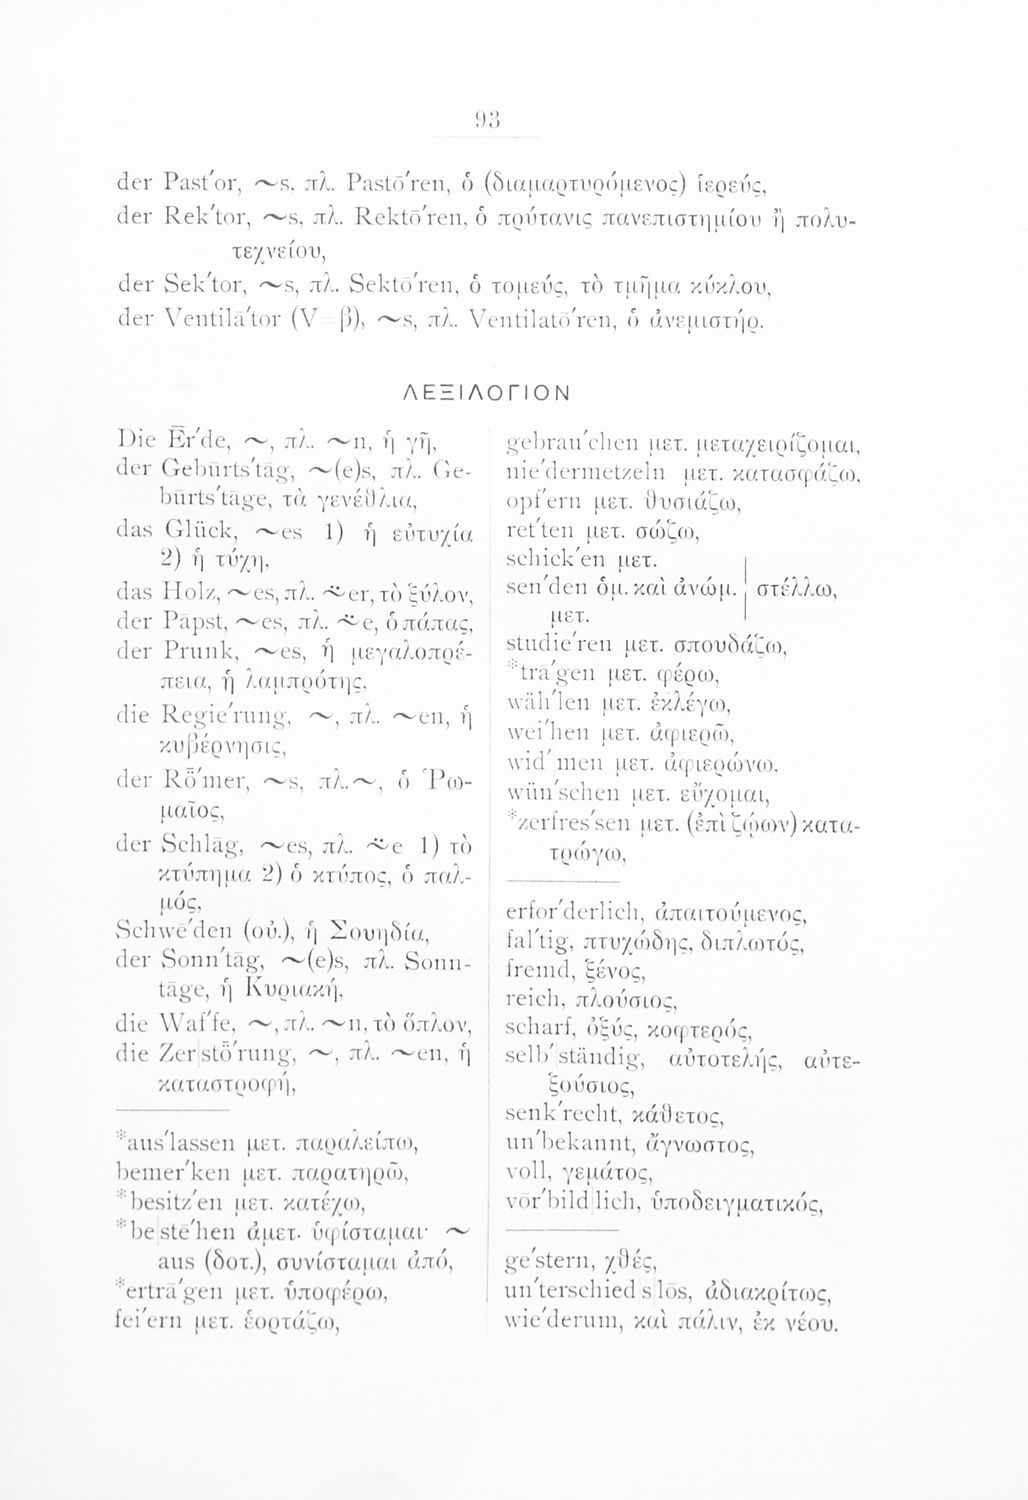 93
der Past'or, ~s, πλ. Pastō'ren, ὁ (διαμαρτυρόμενος) ἱερεύς,
der Rek'tor, ~s, πλ. Rektō'ren, ὁ πρύτανις πανεπιστημίου ἢ πολυ-
τεχνείου,
der Sek'tor, ~s, πλ. Sektō'ren, ὁ τομεύς, τὸ τμῆμα κύκλου,
der Ventilā'tor (V = β), ~s, πλ. Ventilatō'ren, ὁ ἀνεμιστήρ.
ΛΕΞΙΛΟΓΙΟΝ
Die Ēr'de, ~, πλ. ~n, ἡ γῆ,
der Gebūrts'tāg, ~(e)s, πλ. Ge-
būrts'tāge, τὰ γενέθλια,
das Glück, ~es 1) ἡ εὐτυχία
2) ἡ τύχη,
das Holz, ~es, πλ. ~̈er, τὸ ξύλον,
der Pāpst, ~es, πλ. ~̈e, ὁ πάπας,
der Prunk, ~es, ἡ μεγαλοπρέ-
πεια, ἡ λαμπρότης,
die Regie'rung, ~, πλ. ~en, ἡ
κυβέρνησις,
der Rȫ'mer, ~s, πλ. ~, ὁ Ῥω-
μαῖος,
der Schlāg, ~es, πλ. ~̈e 1) τὸ
κτύπημα 2) ὁ κτύπος, ὁ παλ-
μός,
Schwē'den (οὐ.), ἡ Σουηδία,
der Sonn'tāg, ~(e)s, πλ. Sonn-
tāge, ἡ Κυριακή,
die Waf'fe, ~, πλ. ~n, τὸ ὅπλον,
die Zer|stȫ'rung, ~, πλ. ~en, ἡ
καταστροφή,
*aus'lassen μετ. παραλείπω,
bemer'ken μετ. παρατηρῶ,
*besitz'en μετ. κατέχω,
*be|stē'hen ἀμετ. ὑφίσταμαι· ~
aus (δοτ.), συνίσταμαι ἀπό,
*ertrā'gen μετ. ὑποφέρω,
fei'ern μετ. ἑορτάζω,
gebrau'chen μετ. μεταχειρίζομαι,
nie'dermetzeln μετ. κατασφάζω,
opf'ern μετ. θυσιάζω,
ret'ten μετ. σώζω,
schick'en μετ.
sen'den ὁμ. καὶ ἀνώμ. στέλλω,
μετ.
studie'ren μετ. σπουδάζω,
*trā'gen μετ. φέρω,
wäh'len μετ. ἐκλέγω,
wei'hen μετ. ἀφιερῶ,
wid'men μετ. ἀφιερώνω,
wün'schen μετ. εὔχομαι,
*zerfres'sen μετ. (ἐπὶ ζῴων) κατα-
τρώγω,
erfor'derlich, ἀπαιτούμενος,
fal'tig, πτυχώδης, διπλωτός,
fremd, ξένος,
reich, πλούσιος,
scharf, ὀξύς, κοφτερός,
selb'ständig, αὐτοτελής, αὐτε-
ξούσιος,
senk'recht, κάθετος,
un'bekannt, ἄγνωστος,
voll, γεμάτος,
vōr'bild|lich, ὑποδειγματικός,
ge'stern, χθές,
un'terschied|s|lōs, ἀδιακρίτως,
wie'derum, καὶ πάλιν, ἐκ νέου.